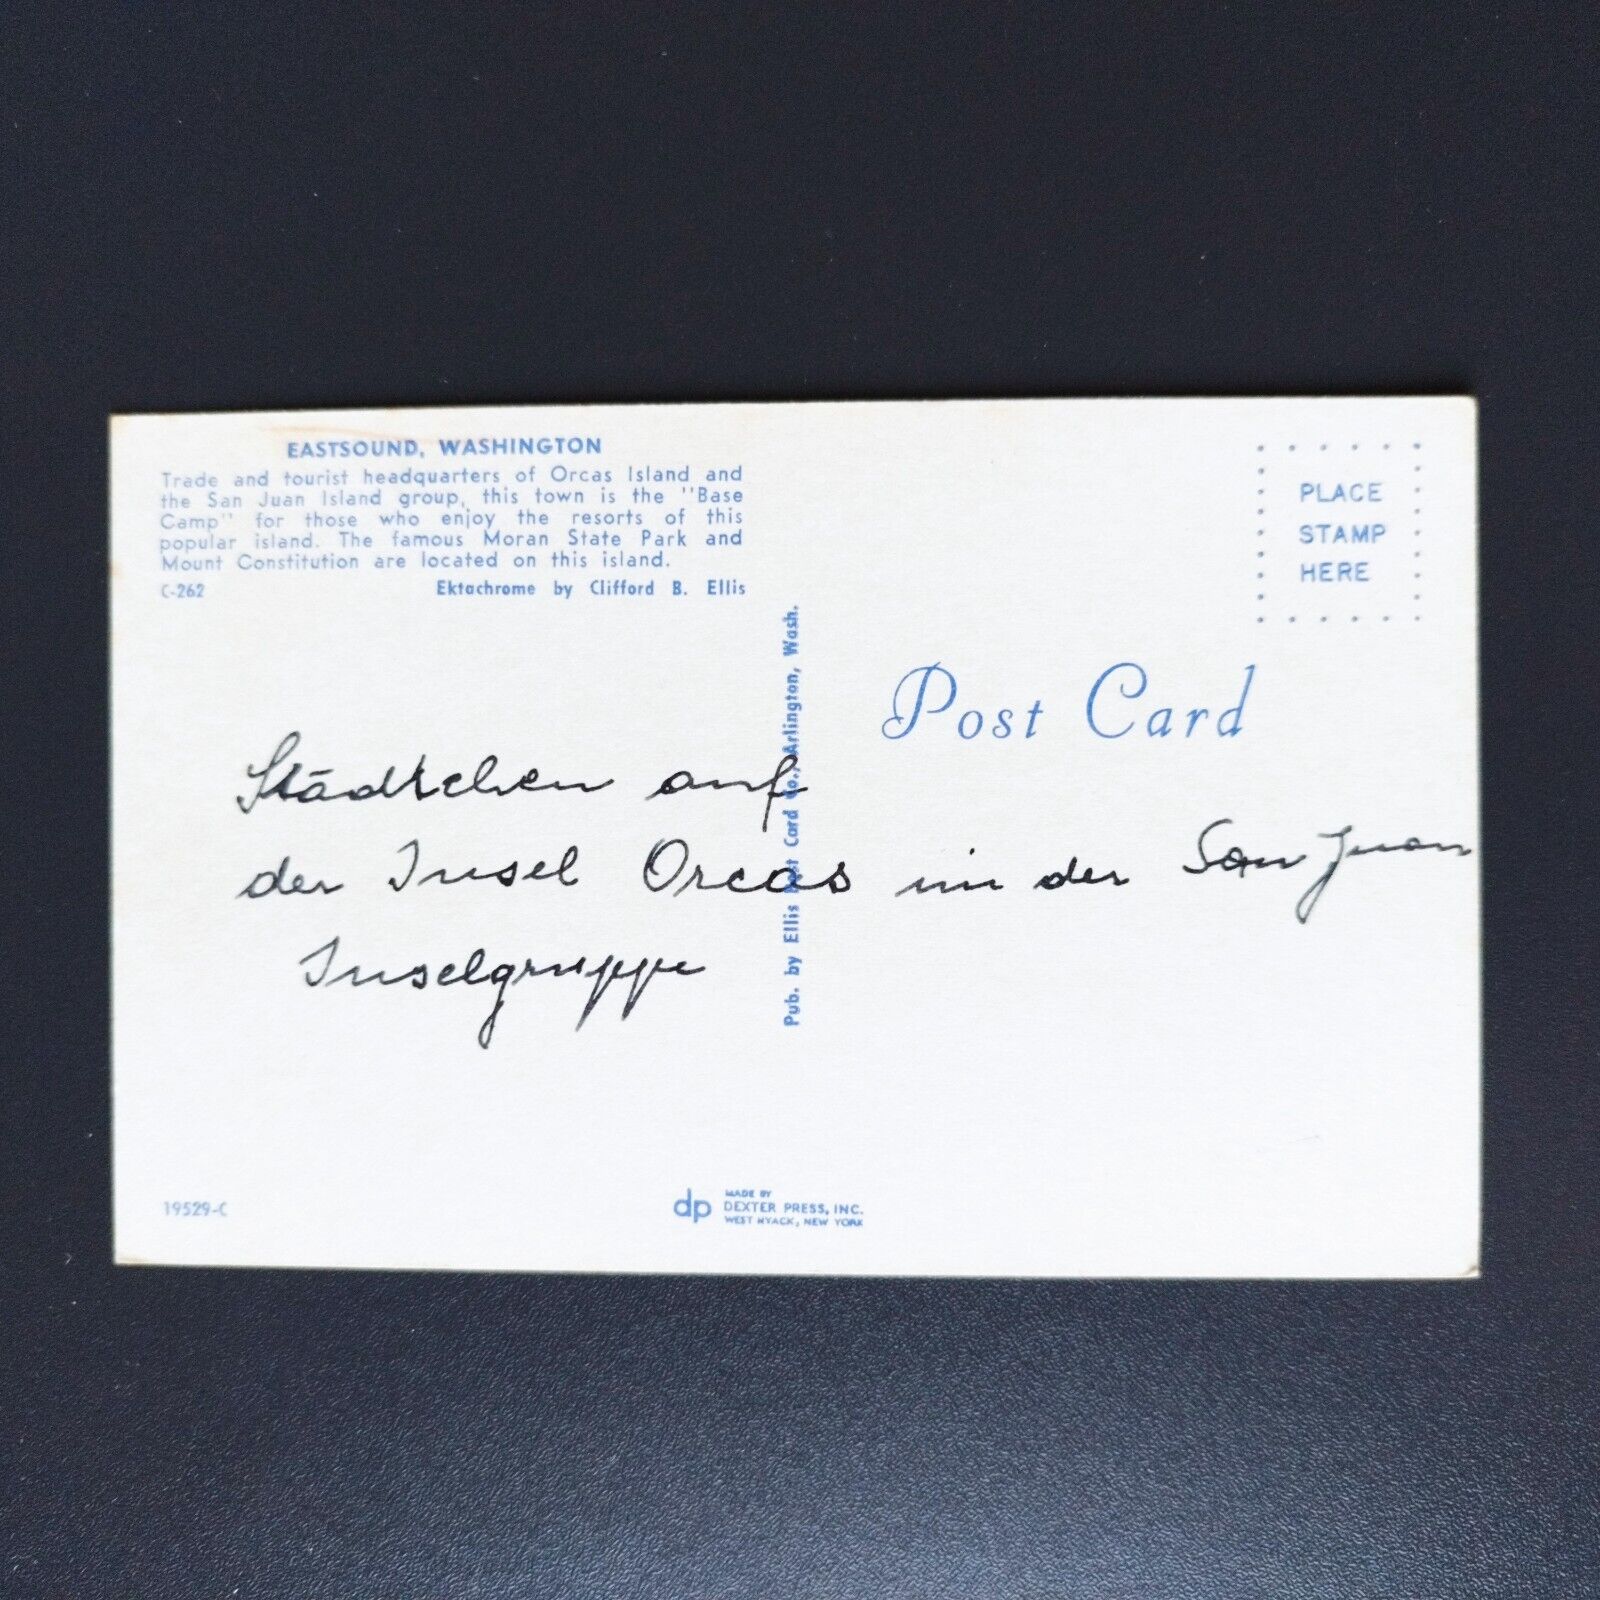 EASTSOUND, WASHINGTON
Trade and tourist headquarters of Orcas Island and
the San Juan Island group, this town is the "Base
Camp" for those who enjoy the resorts of this
popular island. The famous Moran State Park and
Mount Constitution are located on this island.
C-262 Ektachrome by Clifford B. Ellis
Pub. by Ellis Post Card Co., Arlington, Wash.
PLACE
STAMP
HERE
Post Card
Städtchen auf
der Insel Orcas in der San Juan
Inselgruppe
19529-C
dp MADE BY
DEXTER PRESS, INC.
WEST NYACK, NEW YORK